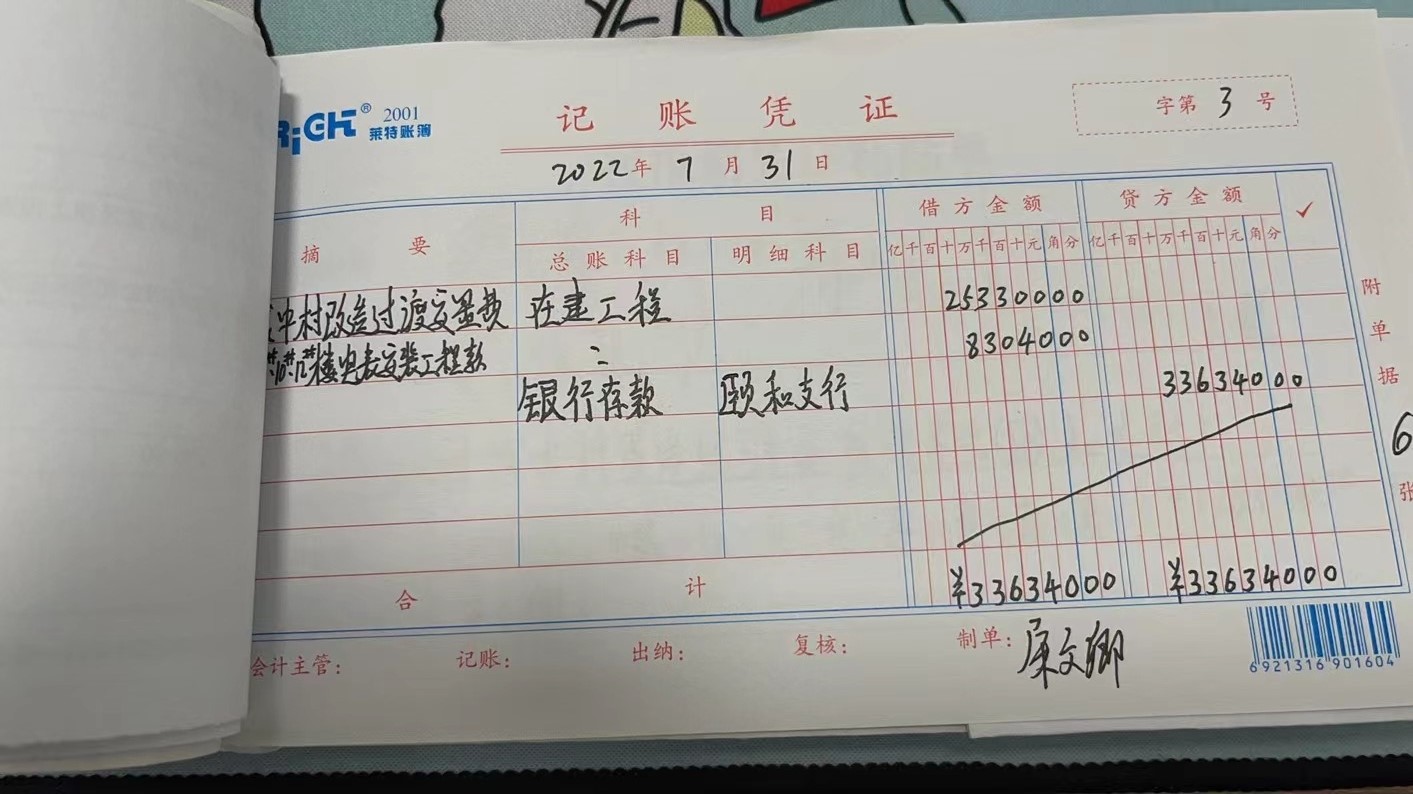 RiGHT® 2001
莱特账簿
记账凭证
字第 3 号
2022年 7 月 31 日
摘要
科目
借方金额
贷方金额
✓
总账科目
明细科目
亿千百十万千百十元角分
亿千百十万千百十元角分
中村改造过渡安置费 在建工程 25330000
10# 12#楼电表安装工程款 〃 8304000
银行存款 颐和支行 33634000
合计 ¥33634000 ¥33634000
附单据 6 张
会计主管: 记账: 出纳: 复核: 制单: 文卿
6 921316 901604